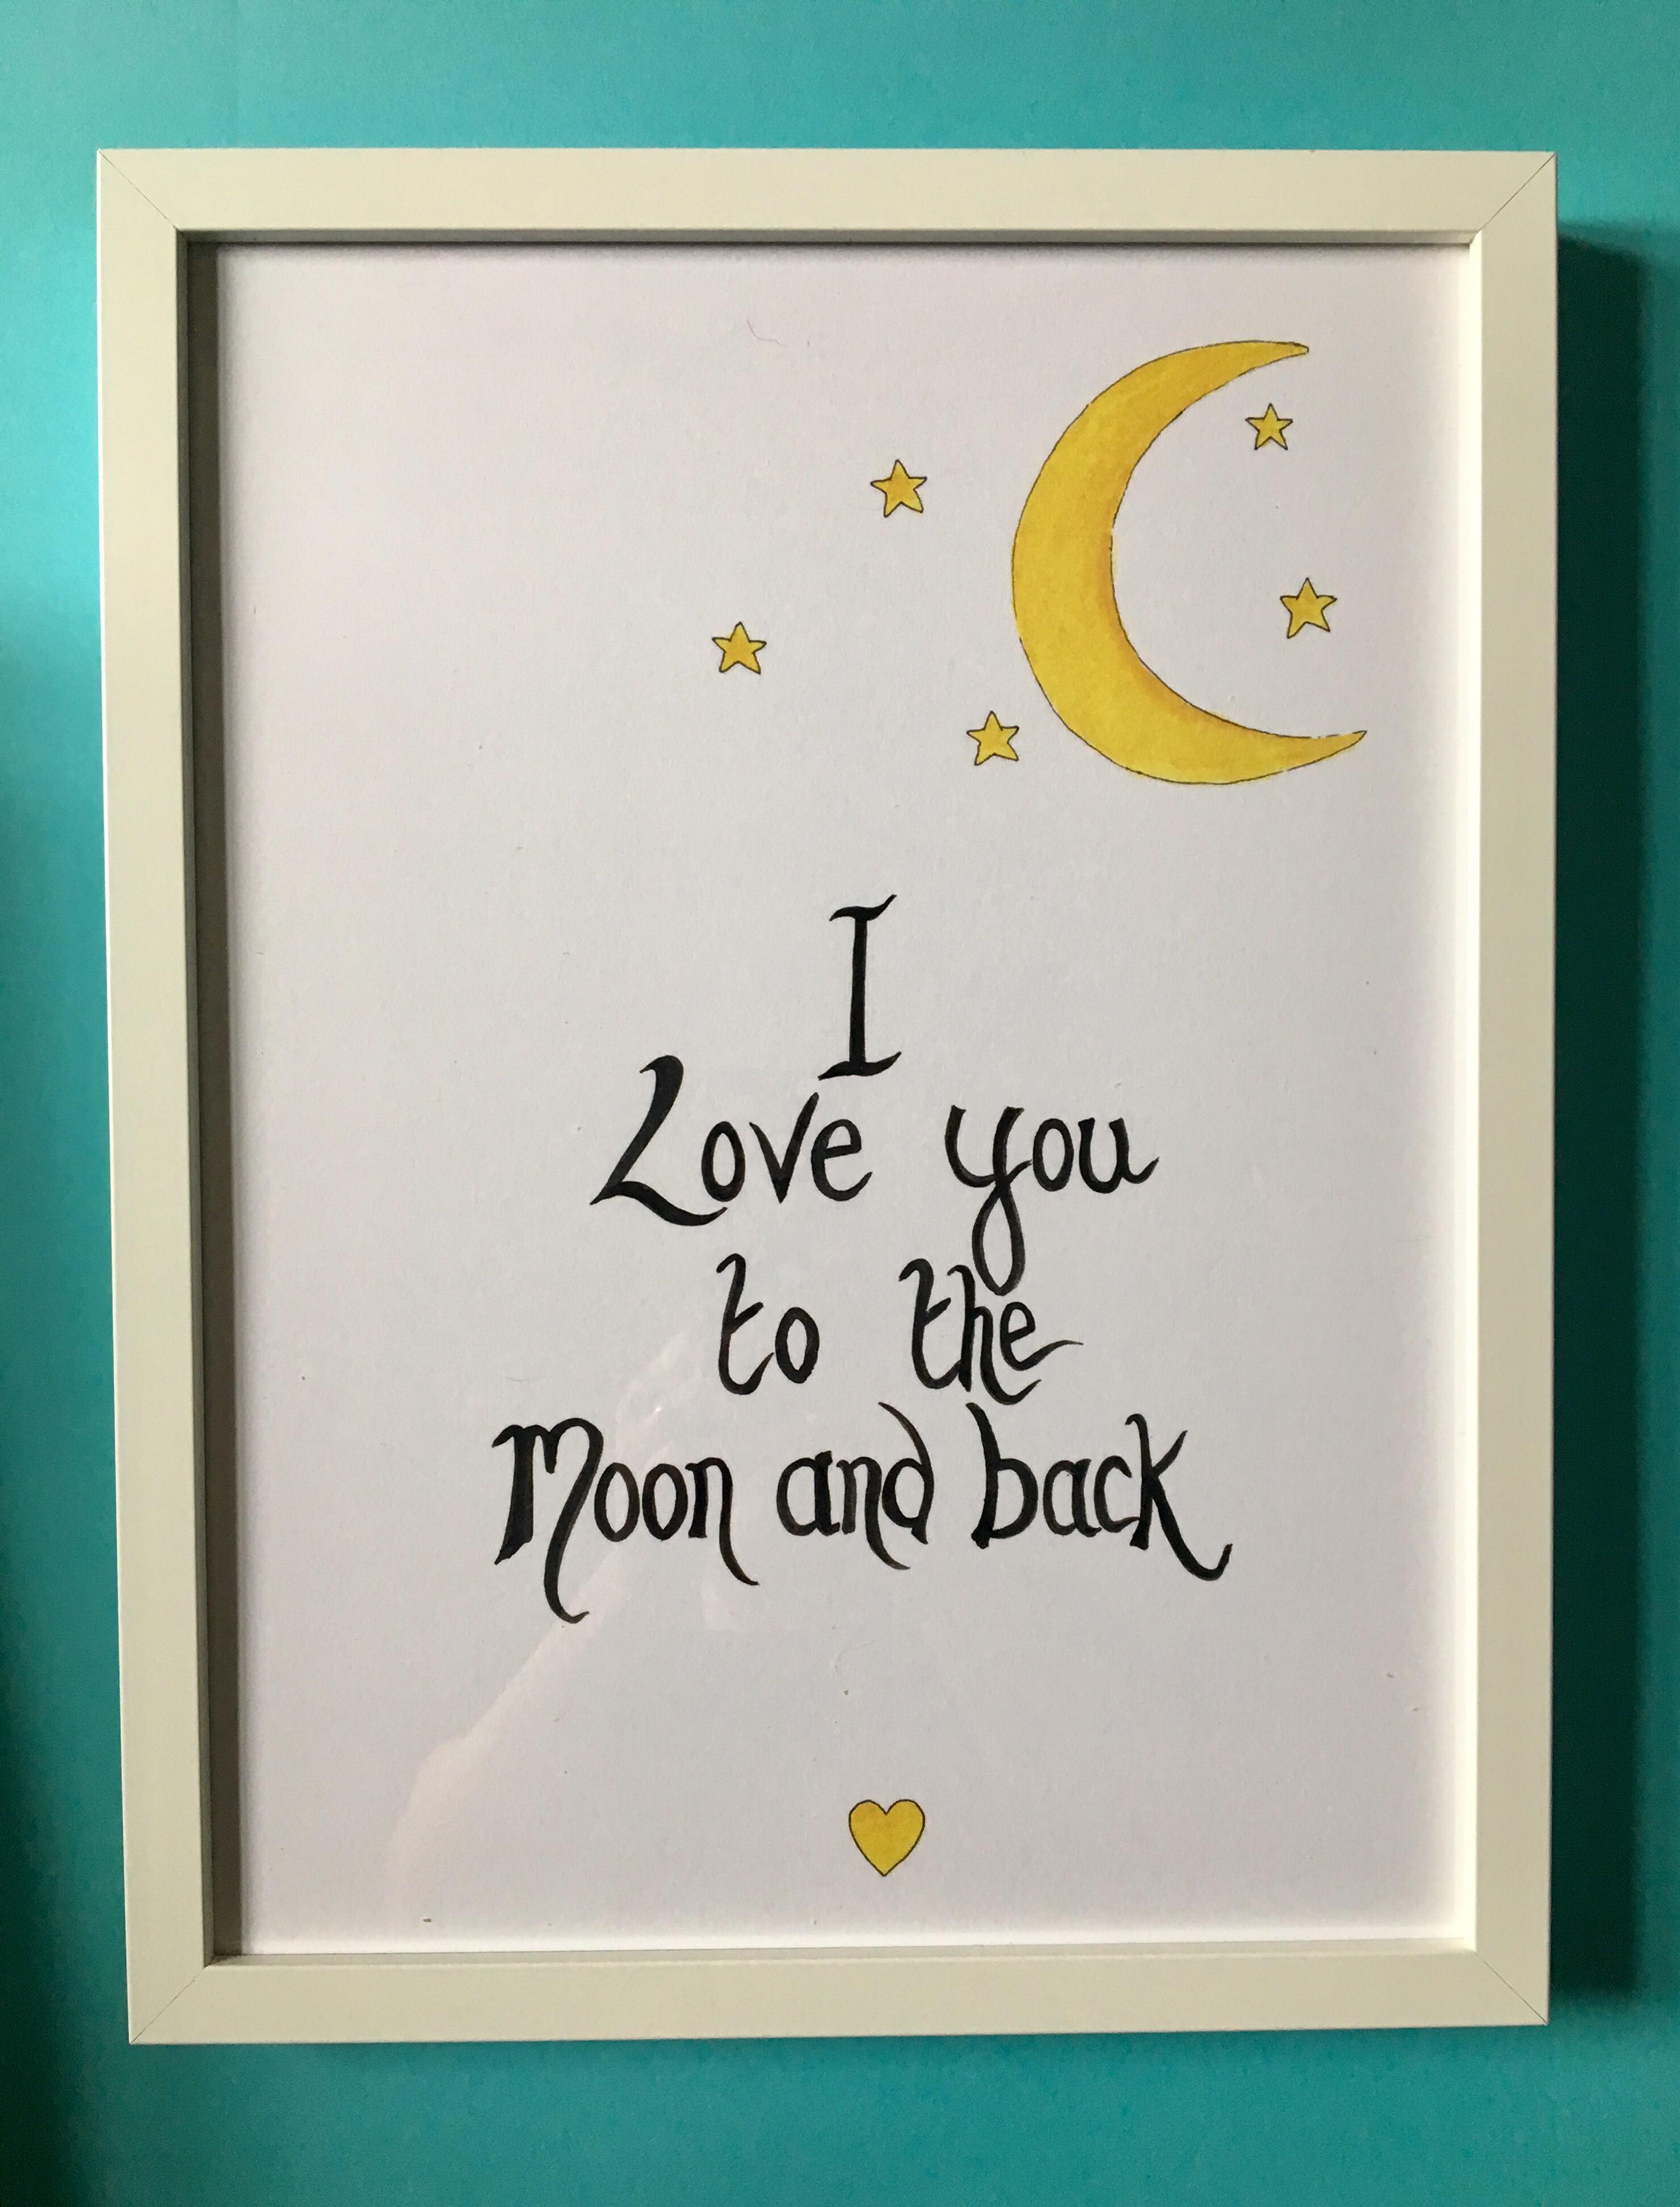 I
Love you
to the
Moon and back